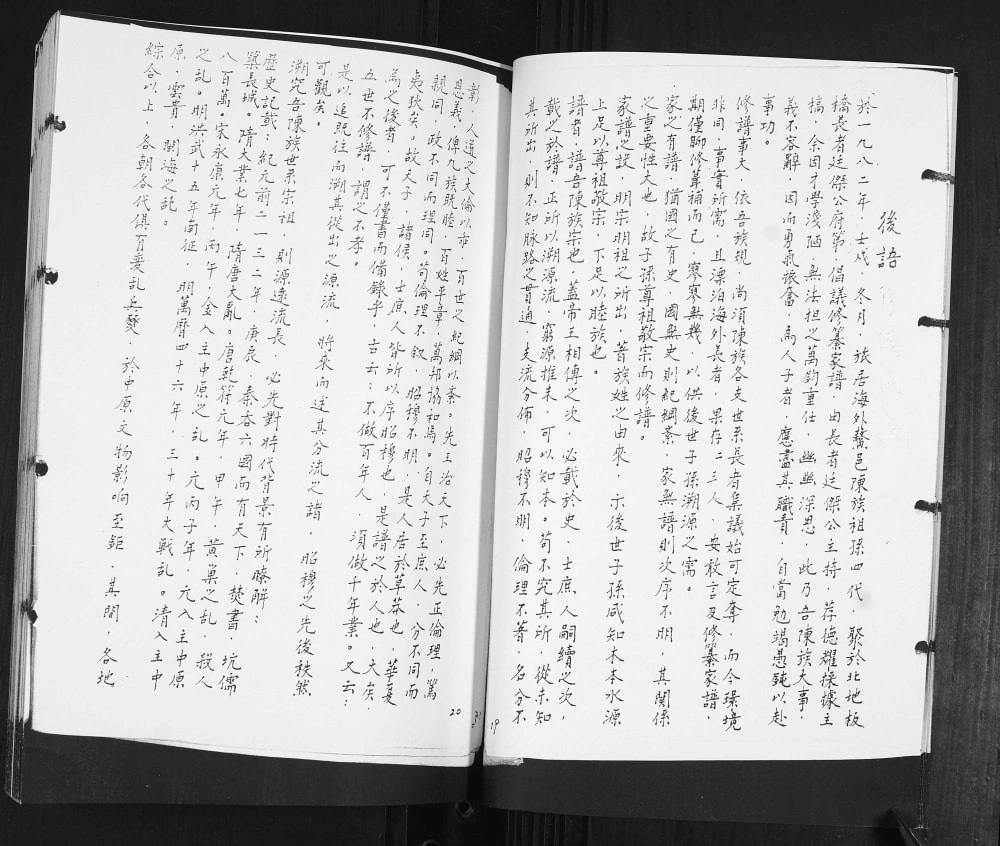 後語
於一九八二年,壬戌 冬月,旅居海外鰲邑陳族祖孫四代,聚於北地板
橋長者廷傑公府第,倡議修纂家譜,由長者廷傑公主持,荐德耀採據主
搞,余因才學淺陋,無法担之萬鈞重任,幽幽深思,此乃吾陳族大事,
義不容辭,因而勇氣振奮,為人子者,應盡其職責,自當勉竭愚鈍以赴
事功。
修譜事大,依吾族規,尚須陳族各支世系長者集議始可定奪,而今環境
非同,事實所需,且漂泊海外長者,果存二三人,安敢言及修纂家譜,
期僅聊修葺補而已,寥寥無幾,以供後世子孫溯源之需。
家之有譜,猶國之有史,國無史則紀綱紊,家無譜則次序不明,其関係
之重要性大也,故子孫尊祖敬宗而修譜。
家譜之設,明宗明祖之所出,著族姓之由來,示後世子孫咸知木本水源
上足以尊祖敬宗,下足以睦族也。
譜者,譜吾陳族宗也,蓋帝王相傳之次,必載於史,士庶人嗣續之次,
載之於譜,正所以溯源流,窮源推未,可以知本。苟不究其所,從未知
其所出,則不知脉路之貫通,支流分佈,昭穆不明,倫理不著,名分不
19
彰,人道之大倫以乖,百世之紀綱以紊。先王治天下,必先正倫理,篤
恩義,俾九族既睦,百姓平章,萬邦協和焉。自天子至庶人,分不同而
親同,政不同而理同。苟倫理不叙,昭穆不明,是人居於草莽也,華夏
夷狄矣。故天子,諸侯,士庶人皆所以序昭穆也,是譜之於人也,大矣,
為之後者,可不僅書而備錄乎,古云:不做百年人,須做千年業。又云:
五世不修譜,謂之不孝。
是以追既往而溯其從出之源流 將來而述其分流之諸,昭穆之先後秩然
可觀矣。
溯究吾陳族世系宗祖,則源遠流長,必先對時代背景有所瞭解:
歷史記載:紀元前二一三二年,庚辰,秦吞六國而有天下,焚書,坑儒
築長城。隋大業七年,隋唐大亂。唐乾符元年,甲午,黃巢之乱,殺人
八百萬。宋永康元年,丙午,金入主中原之乱。元丙子年,元入主中原
之乱。明洪武十五年南征,明萬曆四十六年,三十年大戰乱。清入主中
原,雲貴,閩海之乱。
綜合以上,各朝各代俱有变乱兵燹,於中原文物影响至鉅,其間,各地
20